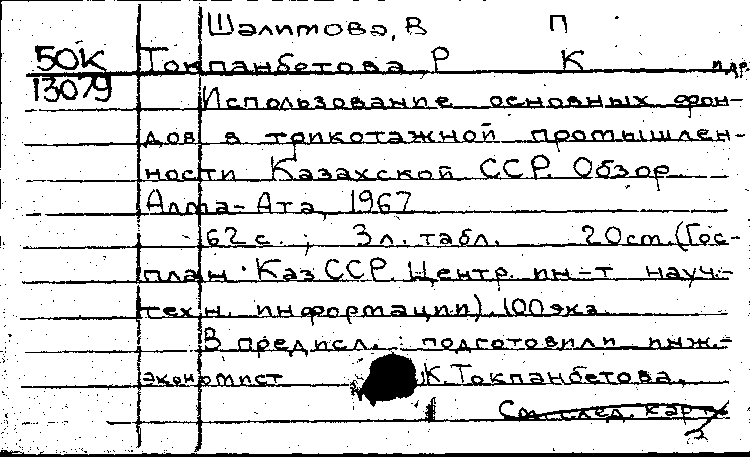 Шалимова, В П
50К Токпанбетова, Р К и др
13079 Использование основных фон-
дов в трикотажной промышлен-
ности Казахской ССР. Обзор.
Алма-Ата, 1967
62с.; 3л. табл. 20cm. (Гос-
план КазССР. Центр. ин-т науч.-
техн. информации). 100экз.
В предисл.: подготовили инж.-
экономист К. Токпанбетова,
См. след. карт.